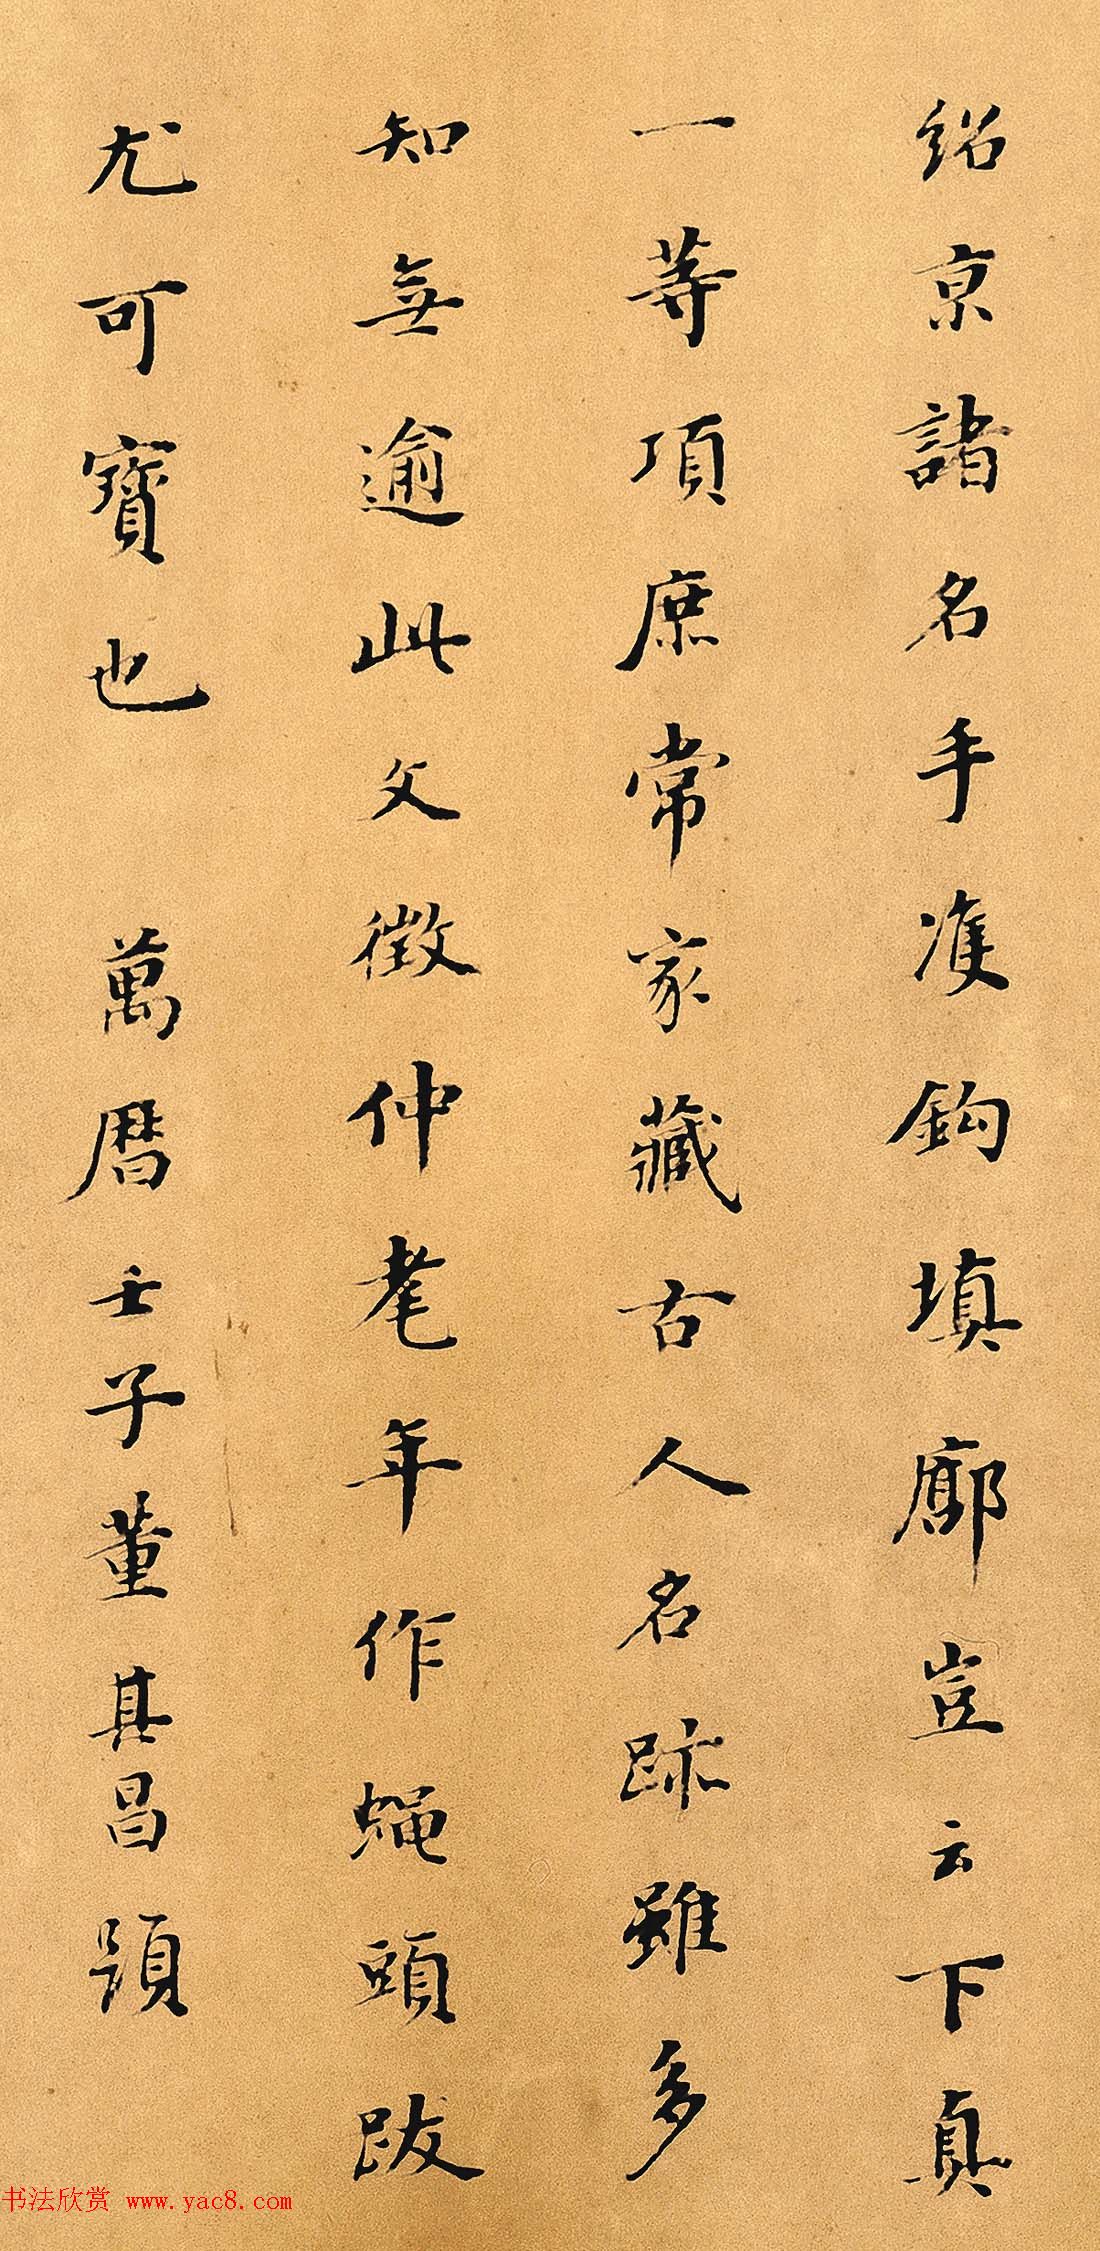 绍京諸名手准鈎填廓豈云下真
一等項庶常家藏古人名跡雖多
知無逾此文徵仲耄年作蝇頭跋
尤可寳也 萬曆壬子董其昌題
书法欣赏 www.yac8.com